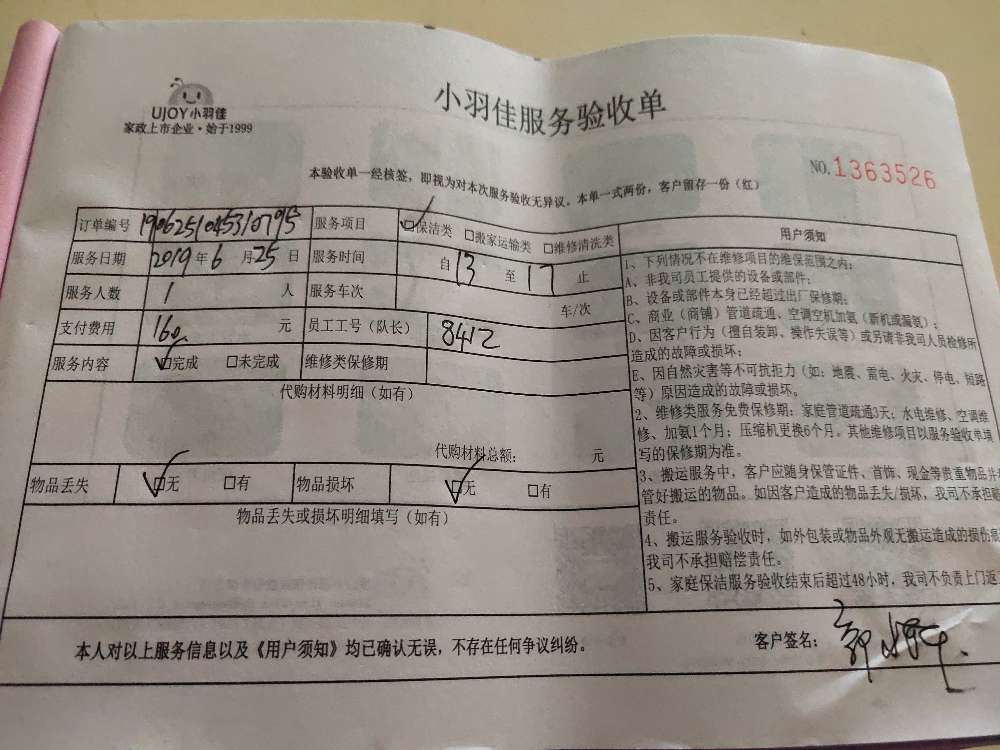 UJOY小羽佳
家政上市企业·始于1999
小羽佳服务验收单
NO.1363526
本验收单一经核签，即视为对本次服务验收无异议。本单一式两份，客户留存一份（红）
订单编号 1906251045310795 服务项目 保洁类 搬家运输类 维修清洗类
服务日期 2019年6月25日 服务时间 自13至17止
服务人数 1人 服务车次 车/次
支付费用 160元 员工工号（队长） 8412
服务内容 完成 未完成 维修类保修期
代购材料明细（如有）
代购材料总额： 元
物品丢失 无 有 物品损坏 无 有
物品丢失或损坏明细填写（如有）
用户须知
1、下列情况不在维修项目的维保范围之内：
A、非我司员工提供的设备或部件；
B、设备或部件本身已经超过出厂保修期；
C、商业（商铺）管道疏通、空调空机加氨（新机或漏氨）；
D、因客户行为（擅自装卸、操作失误等）或另请非我司人员检修所
造成的故障或损坏；
E、因自然灾害等不可抗拒力（如：地震、雷电、火灾、停电、短路
等）原因造成的故障或损坏。
2、维修类服务免费保修期：家庭管道疏通3天；水电维修、空调维
修、加氨1个月；压缩机更换6个月。其他维修项目以服务验收单填
写的保修期为准。
3、搬运服务中，客户应随身保管证件、首饰、现金等贵重物品并
管好搬运的物品。如因客户造成的物品丢失/损坏，我司不承担
责任。
4、搬运服务验收时，如外包装或物品外观无搬运造成的损伤
我司不承担赔偿责任。
5、家庭保洁服务验收结束后超过48小时，我司不负责上门返
本人对以上服务信息以及《用户须知》均已确认无误，不存在任何争议纠纷。
客户签名：郭